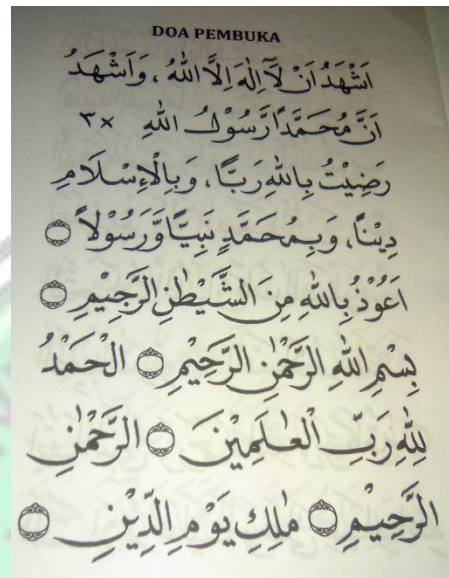 DOA PEMBUKA
اَشْهَدُ اَنْ لَآ اِلٰهَ اِلَّا اللهُ ، وَاَشْهَدُ
اَنَّ مُحَمَّدًا رَّسُوْلُ اللهِ ×٣
رَضِيْتُ بِاللهِ رَبًّا، وَبِالْاِسْلَامِ
دِيْنًا، وَبِمُحَمَّدٍ نَبِيًّا وَّرَسُوْلاً ۝
اَعُوْذُ بِاللهِ مِنَ الشَّيْطٰنِ الرَّجِيْمِ ۝
بِسْمِ اللهِ الرَّحْمٰنِ الرَّحِيْمِ ۝ الْحَمْدُ
لِلّٰهِ رَبِّ الْعٰلَمِيْنَ ۝ الرَّحْمٰنِ
الرَّحِيْمِ ۝ مٰلِكِ يَوْمِ الدِّيْنِ ۝